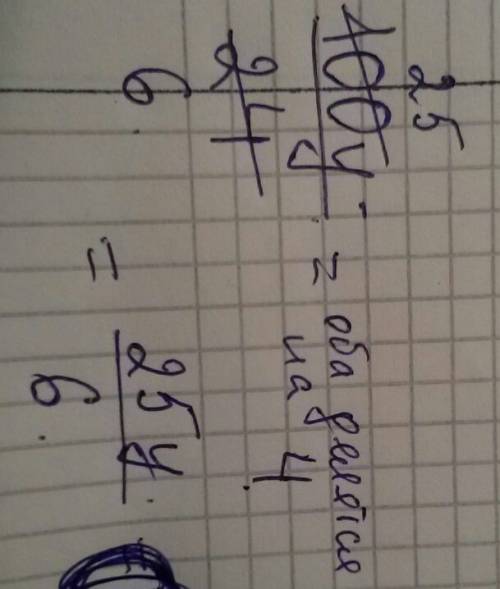 25
100y = оба делятся
24 на 4
6
= 25y
6